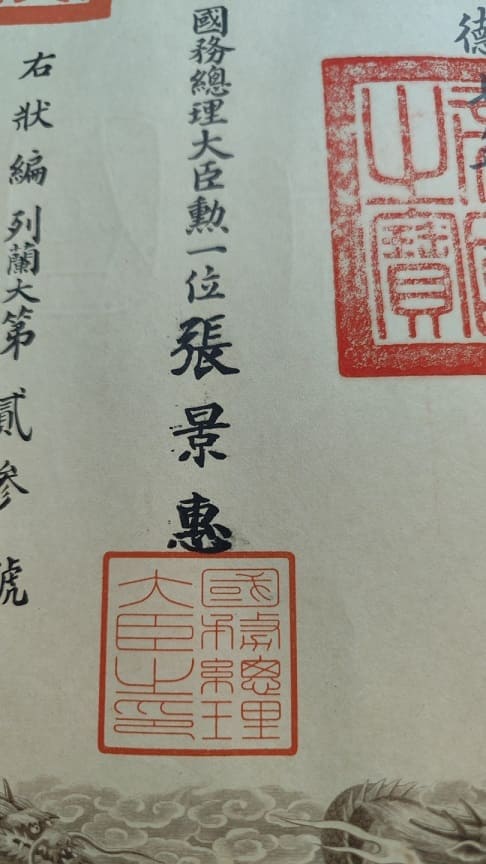 德
之寶
國務總理大臣勲一位張景惠
國務總理
大臣之印
右狀編列蘭大第貳參號